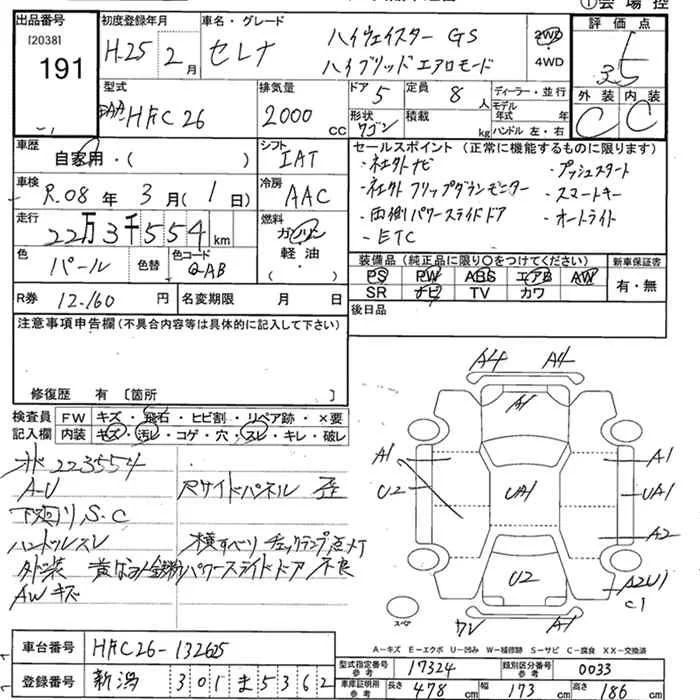 ①会場控
出品番号 初度登録年月 車名・グレード 評価点
[2038] 191
H.25年 2月 セレナ ハイウェイスター GS
ハイブリッド エアロモード
2WD
・
4WD
3.5
外装 内装
C C
型式 DAA HFC26 排気量 2000 cc
ドア 5 定員 8 人 ディーラー・並行
形状 ワゴン 積載 kg モデル年式 年式
ハンドル 左・右
車歴 自家用・( ) シフト IAT
セールスポイント (正常に機能するものに限ります)
・社外ナビ ・プッシュスタート
・社外フリップダウンモニター ・スマートキー
・両側パワースライドドア ・オートライト
・ETC
車検 R.08年 3月( 1日) 冷房 AAC
走行 22万3千554km 燃料 ガソリン
軽油
・
( )
色 パール 色替 色コード QAB
装備品 (純正品に限り○をつけてください) 新車保証書
PS PW ABS エアB AW
SR ナビ TV カワ
有・無
R券 12,160円 名変期限 月 日
後日品
注意事項申告欄 (不具合内容等は具体的に記入して下さい)
修復歴 有 〔箇所 〕
検査員記入欄 FW キズ・飛石・ヒビ割・リペア跡・×要
内装 キズ・汚レ・コゲ・穴・スレ・キレ・破レ
223554
A-U Rサイドパネル 歪
下廻り S.C
ハンドルスレ 横すべり チェックランプ点灯
外装 黄ばみ 鉄粉 パワースライドドア 不良
AWキズ
A4 A4
A1
A1 A1
U2 UA1 UA1
A2
U2 A2U1
C1
スペア A1
A-キズ E-エクボ U-凹み W-補修跡 S-サビ C-腐食 XX-交換済
車台番号 HFC26-132625
登録番号 新潟 301 ま 5362
型式指定番号 参考 17324 類別区分番号 参考 0033
車庫証明用 参考 長さ 478cm 幅 173cm 高さ 186cm